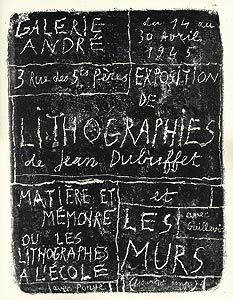 GALERIE
ANDRÉ
du 14 au
30 Avril
1945
3 Rue des Sts Pères
EXPOSITION
DE
LITHOGRAPHIES
de Jean Dubuffet
MATIÈRE ET
MÉMOIRE
OU LES
LITHOGRAPHES
A L'ÉCOLE
(avec Ponge)
et
LES
MURS
(avec
Guillevic)